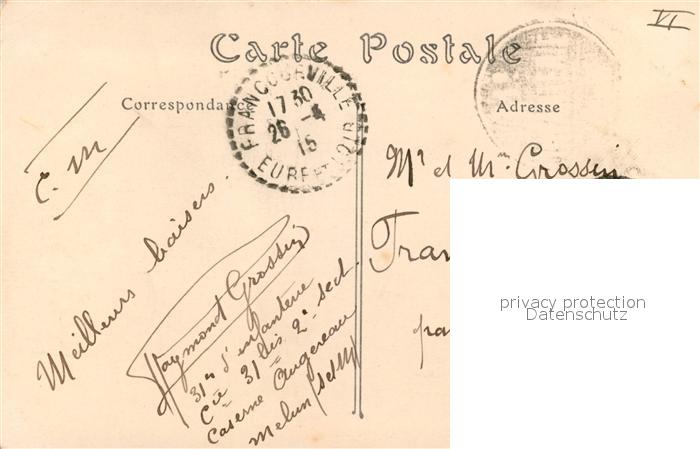 VI
Carte Postale
Correspondance
Adresse
FRANCOURVILLE
17 30
26 -4
15
EURE ET LOIR
E. M
Mr et Mme Grossin
Fran
pa
Meilleurs baisers.
Raymond Grossin
31e d'infanterie
Cie 31 bis 2e sect.
Caserne Augereau
Melun (S et M)
privacy protection
Datenschutz